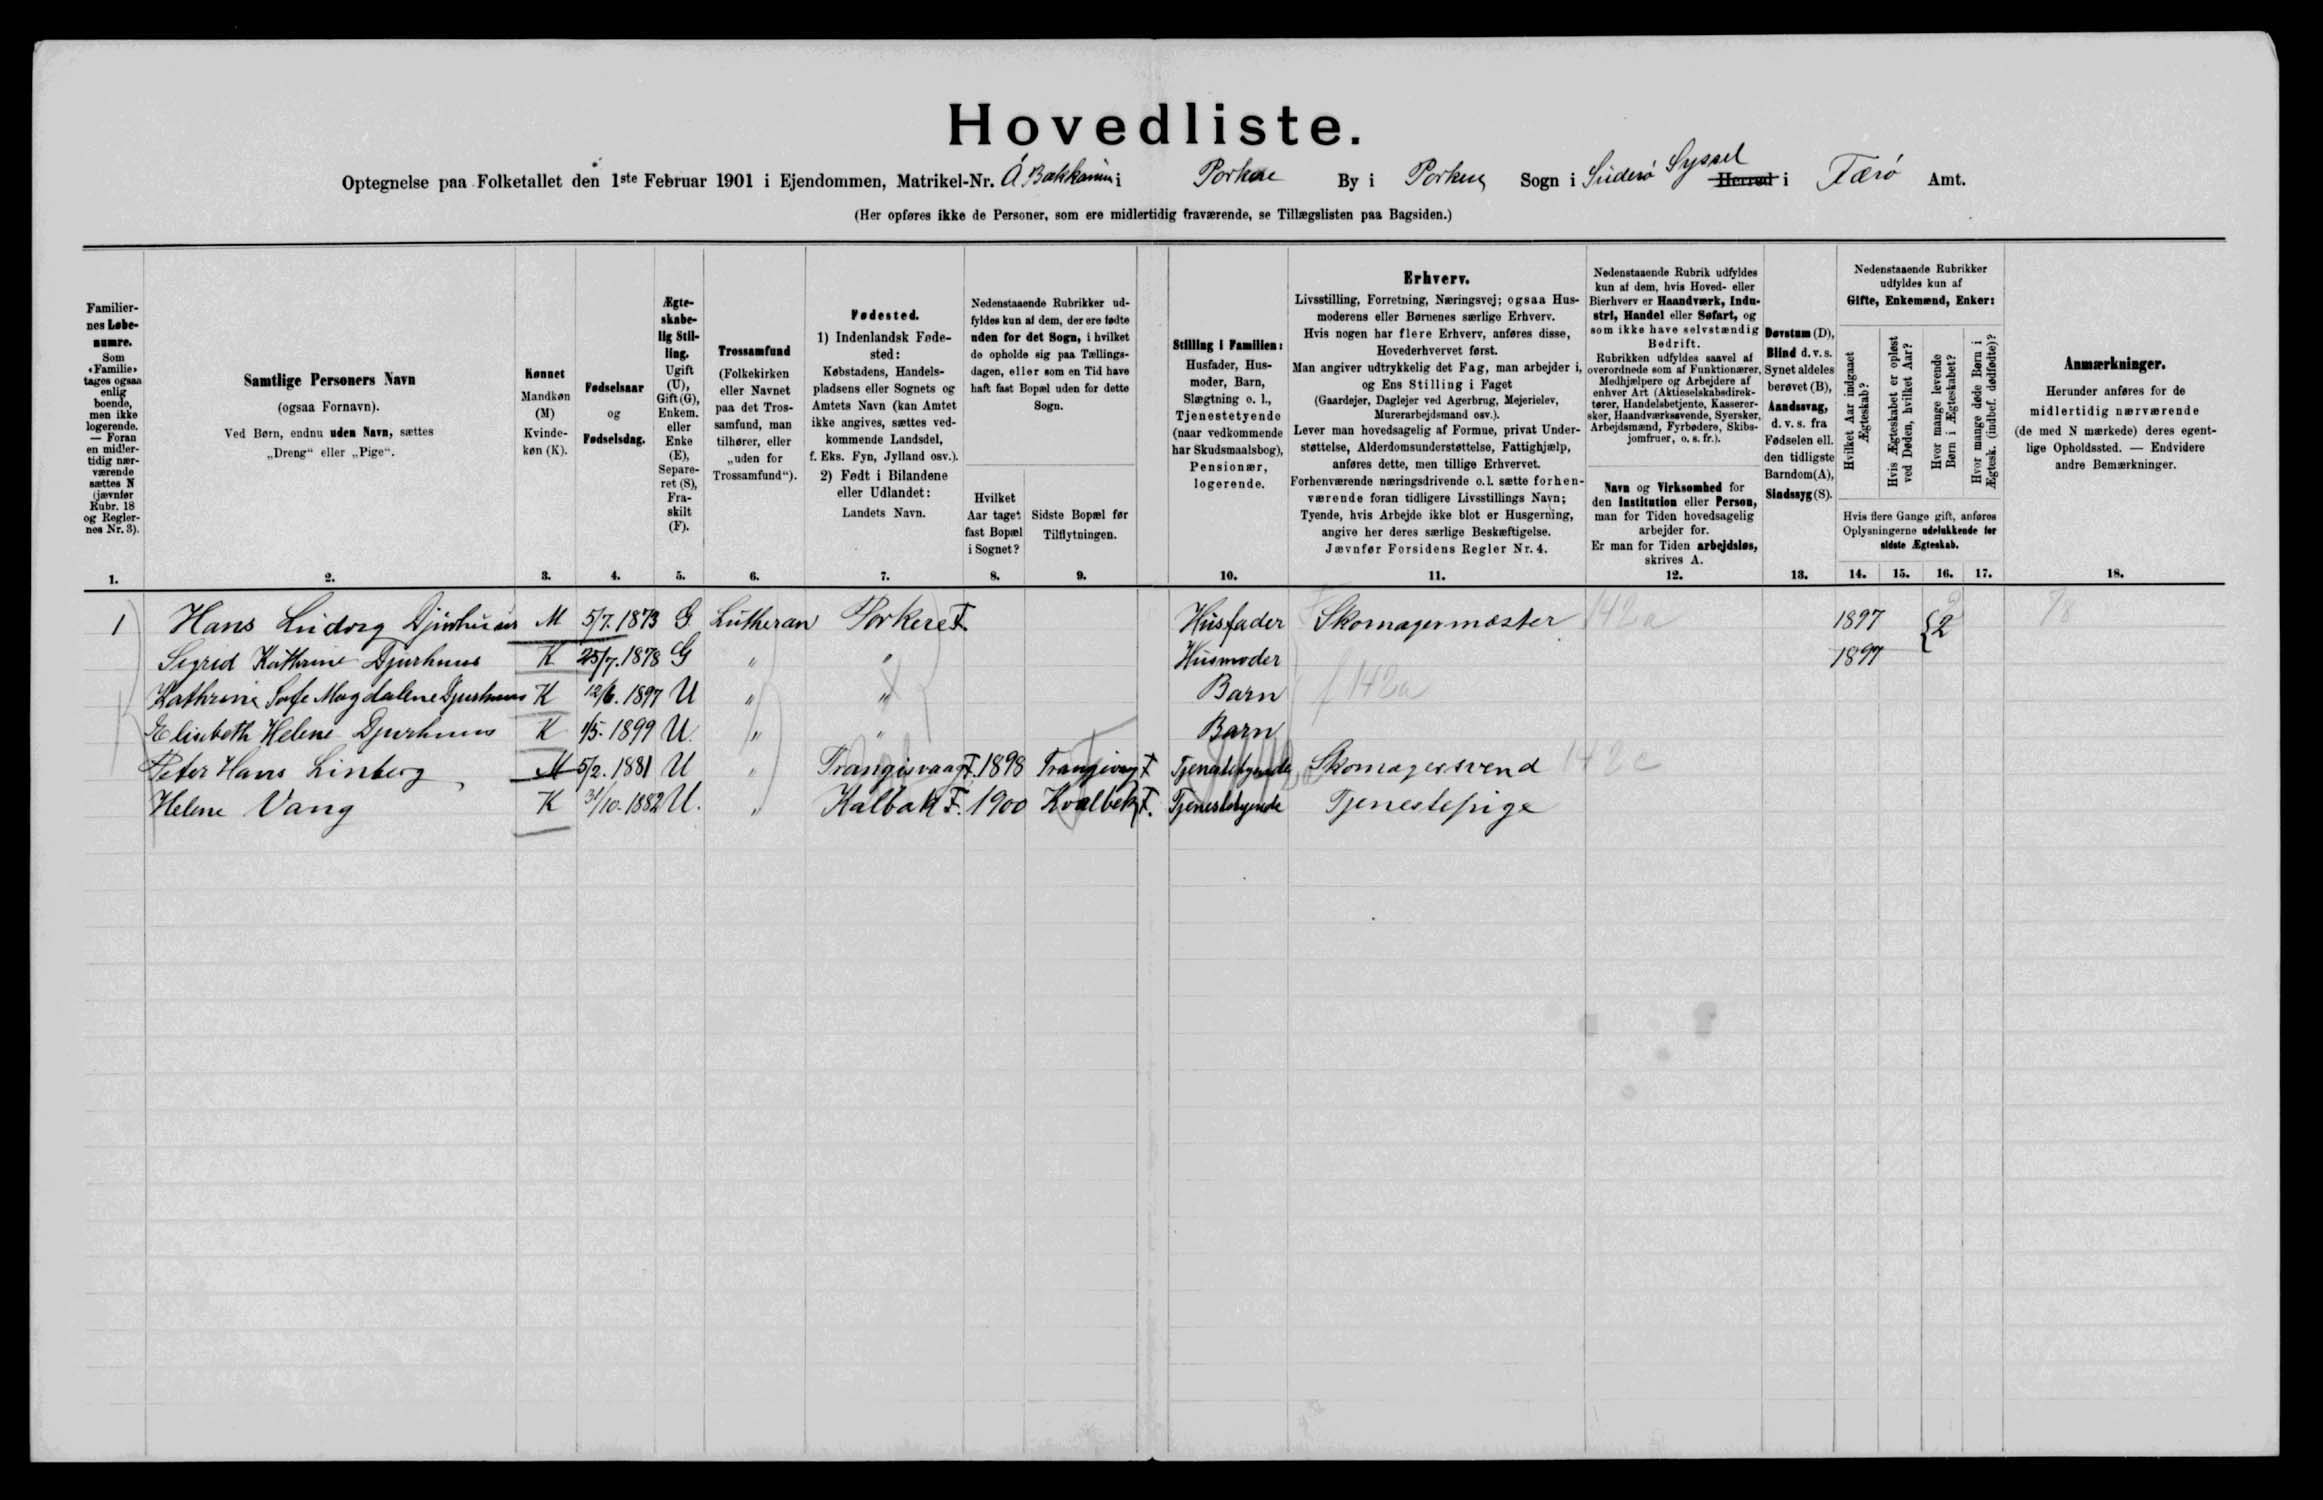 Hovedliste.
Optegnelse paa Folketallet den 1ste Februar 1901 i Ejendommen, Matrikel-Nr. Á Bakkanum i Porkere By i Porkeri Sogn i Suderø Syssel Herred i Færø Amt.
(Her opføres ikke de Personer, som ere midlertidig fraværende, se Tillægslisten paa Bagsiden.)
Familier-
nes Løbe-
numre.
Som
«Familie»
tages ogsaa
enlig
boende,
men ikke
logerende.
— Foran
en midler-
tidig nær-
værende
sættes N
(jævnfør
Rubr. 18
og Regler-
nes Nr. 3).
1.
Samtlige Personers Navn
(ogsaa Fornavn).
Ved Børn, endnu uden Navn, sættes
„Dreng“ eller „Pige“.
2.
Kønnet
Mandkøn
(M)
Kvinde-
køn (K).
3.
Fødselsaar
og
Fødselsdag.
4.
Ægte-
skabe-
lig Stil-
ling.
Ugift
(U),
Gift (G),
Enkem.
eller
Enke
(E),
Separe-
ret (S),
Fra-
skilt
(F).
5.
Trossamfund
(Folkekirken
eller Navnet
paa det Tros-
samfund, man
tilhører, eller
„uden for
Trossamfund“).
6.
Fødested.
1) Indenlandsk Føde-
sted:
Købstadens, Handels-
pladsens eller Sognets og
Amtets Navn (kan Amtet
ikke angives, sættes ved-
kommende Landsdel,
f. Eks. Fyn, Jylland osv.).
2) Født i Bilandene
eller Udlandet:
Landets Navn.
7.
Nedenstaaende Rubrikker ud-
fyldes kun af dem, der ere fødte
uden for det Sogn, i hvilket
de opholde sig paa Tællings-
dagen, eller som en Tid have
haft fast Bopæl uden for dette
Sogn.
Hvilket
Aar taget
fast Bopæl
i Sognet?
8.
Sidste Bopæl før
Tilflytningen.
9.
Stilling i Familien:
Husfader, Hus-
moder, Barn,
Slægtning o. l.,
Tjenestetyende
(naar vedkommende
har Skudsmaalsbog),
Pensionær,
logerende.
10.
Erhverv.
Livsstilling, Forretning, Næringsvej; ogsaa Hus-
moderens eller Børnenes særlige Erhverv.
Hvis nogen har flere Erhverv, anføres disse,
Hovederhvervet først.
Man angiver udtrykkelig det Fag, man arbejder i,
og Ens Stilling i Faget
(Gaardejer, Daglejer ved Agerbrug, Mejerielev,
Murerarbejdsmand osv.).
Lever man hovedsagelig af Formue, privat Under-
støttelse, Alderdomsunderstøttelse, Fattighjælp,
anføres dette, men tillige Erhvervet.
Forhenværende næringsdrivende o.l. sætte forhen-
værende foran tidligere Livsstillings Navn;
Tyende, hvis Arbejde ikke blot er Husgerning,
angive her deres særlige Beskæftigelse.
Jævnfør Forsidens Regler Nr. 4.
11.
Nedenstaaende Rubrik udfyldes
kun af dem, hvis Hoved- eller
Bierhverv er Haandværk, Indu-
stri, Handel eller Søfart, og
som ikke have selvstændig
Bedrift.
Rubrikken udfyldes saavel af
overordnede som af Funktionærer,
Medhjælpere og Arbejdere af
enhver Art (Aktieselskabsdirek-
tører, Handelsbetjente, Kasserer-
sker, Haandværkssvende, Syersker,
Arbejdsmænd, Fyrbødere, Skibs-
jomfruer, o. s. fr.).
Navn og Virksomhed for
den Institution eller Person,
man for Tiden hovedsagelig
arbejder for.
Er man for Tiden arbejdsløs,
skrives A.
12.
Døvstum (D),
Blind d. v. s.
Synet aldeles
berøvet (B),
Aandssvag,
d. v. s. fra
Fødselen ell.
den tidligste
Barndom (A),
Sindssyg (S).
13.
Nedenstaaende Rubrikker
udfyldes kun af
Gifte, Enkemænd, Enker:
Hvilket Aar indgaaet
Ægteskab?
Hvis Ægteskabet er opløst
ved Døden, hvilket Aar?
Hvor mange levende
Børn i Ægteskabet?
Hvor mange døde Børn i
Ægtesk. (indbef. dødfødte)?
Hvis flere Gange gift, anføres
Oplysningerne udelukkende for
sidste Ægteskab.
14. 15. 16. 17.
Anmærkninger.
Herunder anføres for de
midlertidig nærværende
(de med N mærkede) deres egent-
lige Opholdssted. — Endvidere
andre Bemærkninger.
18.
1 Hans Ludvig Djurhuus M 5/7. 1873 G Lutheran Porkere F. Husfader Skomagermester 142a 1897 {2 78
Sigrid Kathrine Djurhuus K 25/7. 1878 G " " Husmoder 1897
Kathrine Sofie Magdalene Djurhuus K 12/6. 1897 U " " Barn f 142a
Elisabeth Helene Djurhuus K 1/5. 1899 U. " " Barn
Peter Hans Linberg M 5/2. 1881 U " Trangisvaag F. 1898 Trangisvag F Tjenestetyende Skomagersvend 142c
Helene Vang K 31/10. 1882 U. " Kalbak F. 1900 Kvalbek F. Tjenestetyende Tjenestepige